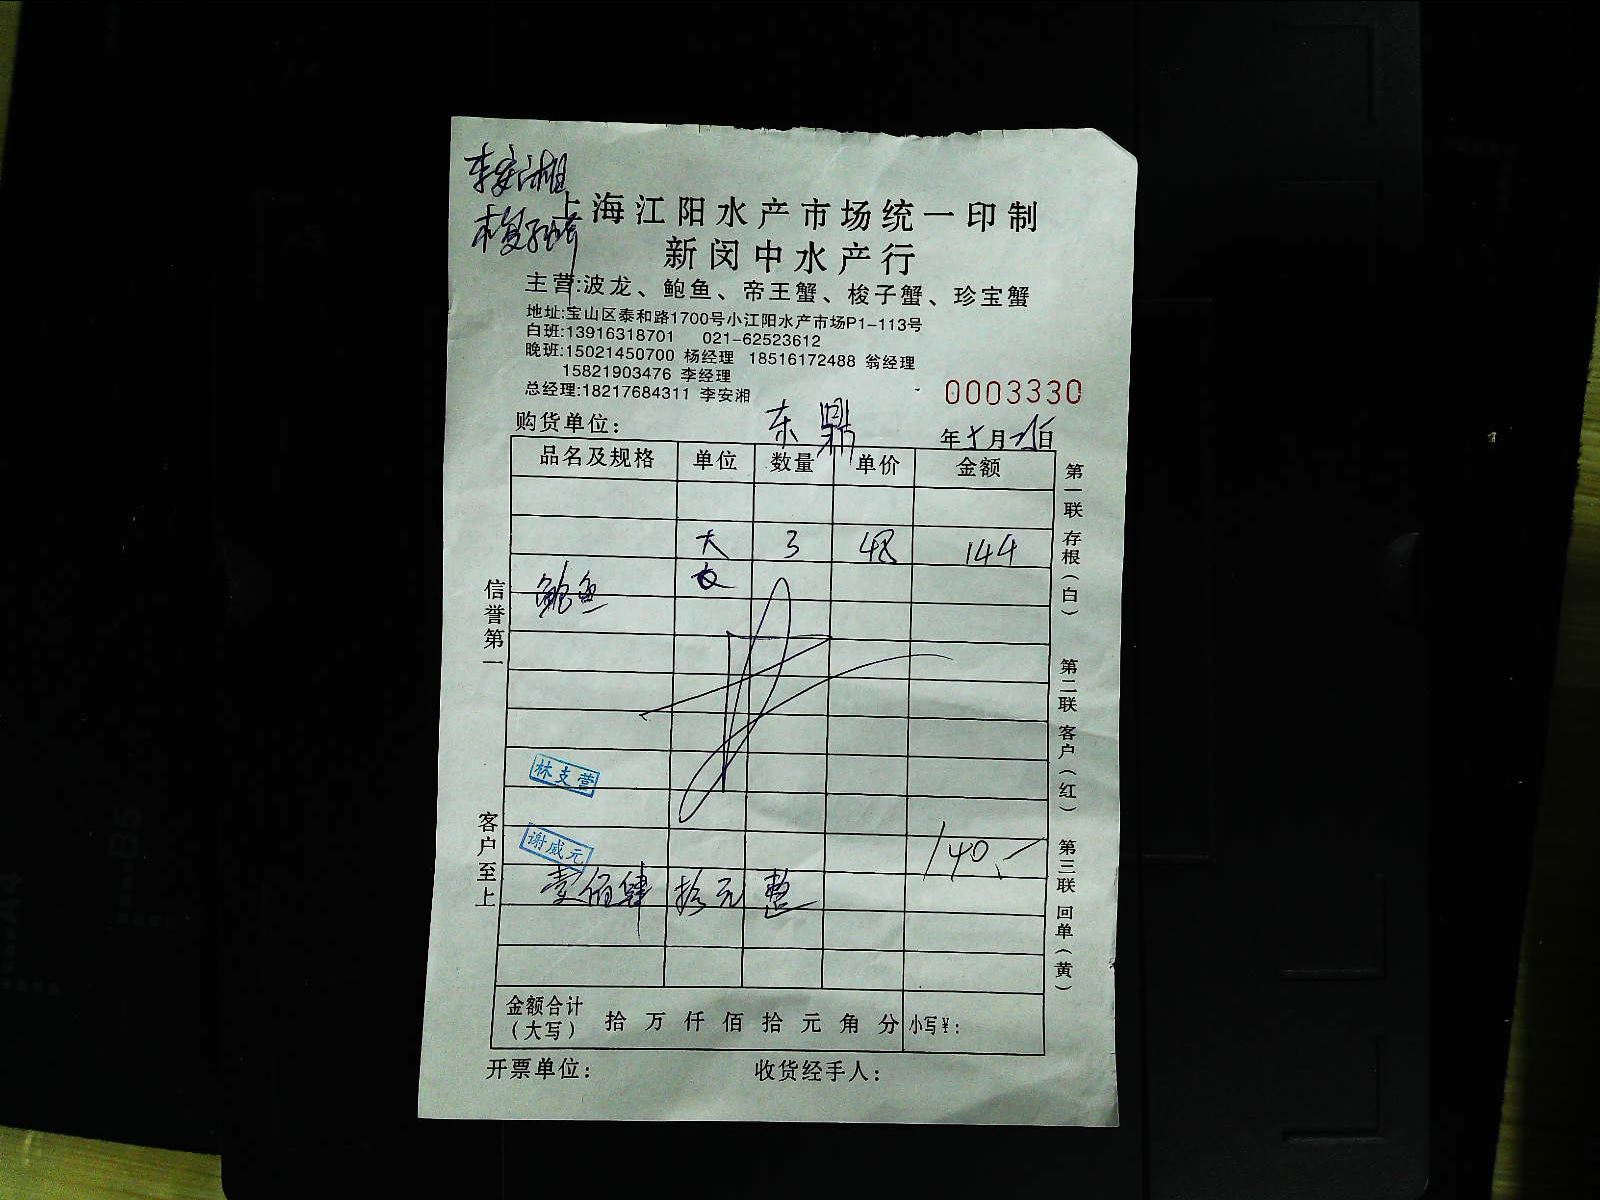 李安湘
梭子蟹
上海江阳水产市场统一印制
新闵中水产行
主营:波龙、鲍鱼、帝王蟹、梭子蟹、珍宝蟹
地址:宝山区泰和路1700号小江阳水产市场P1-113号
白班:13916318701 021-62523612
晚班:15021450700 杨经理 18516172488 翁经理
15821903476 李经理
总经理:18217684311 李安湘
0003330
购货单位: 东鼎
年 月 日
品名及规格 单位 数量 单价 金额
大 3 48 144
鲍鱼
林支营
谢威元
140.-
壹佰肆拾元整
金额合计(大写) 拾万仟佰拾元角分 小写¥:
开票单位: 收货经手人:
信誉第一
客户至上
第一联 存根(白)
第二联 客户(红)
第三联 回单(黄)